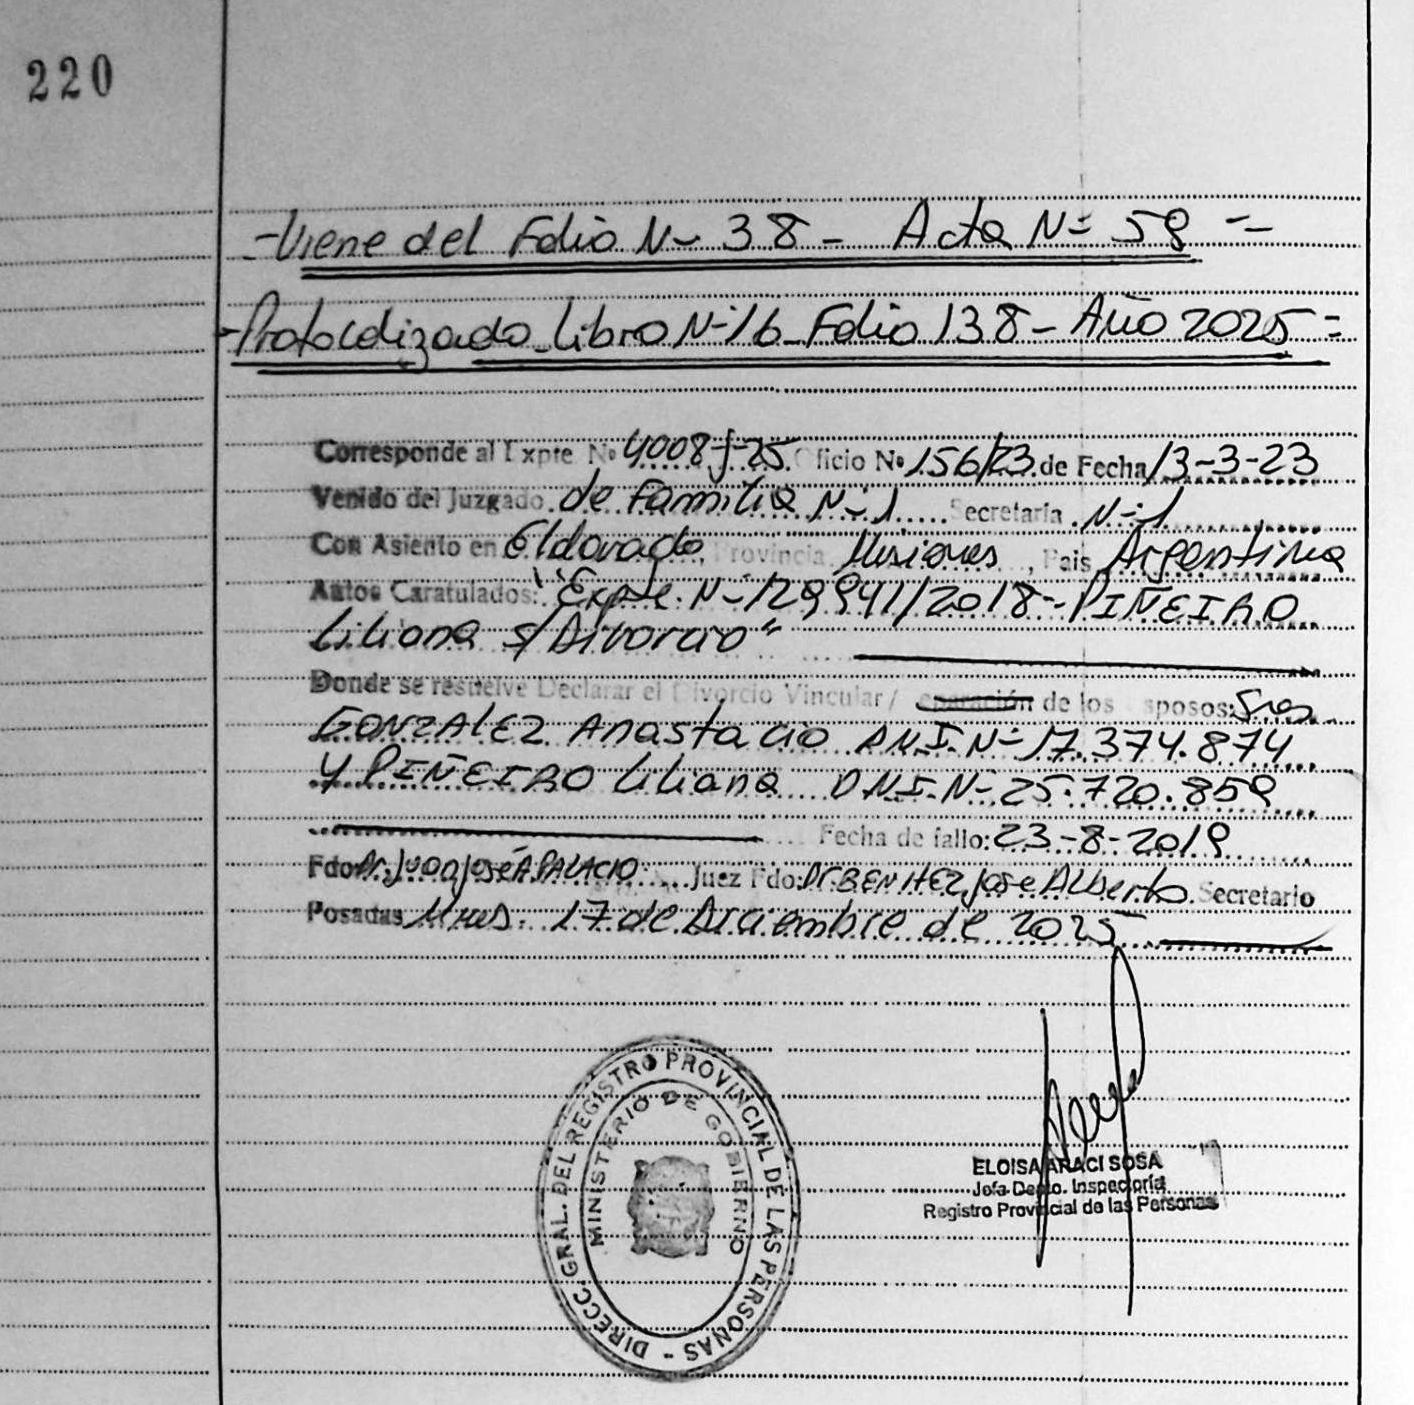 220
-Viene del Folio N- 38 - Acta N- 59 -
-Protocolizado Libro N-16 Folio 138 - Año 2025=
Corresponde al Expte Nº 4008-J-25. Oficio Nº 156/23 de Fecha 13-3-23
Venido del Juzgado de Familia N-1 Secretaria N-1
Con Asiento en Eldorado, Provincia Misiones, Pais Argentina
Autos Caratulados: "Expte. N-129941/2018- PIÑEIRO
Liliana s/Divorcio"
Donde se resuelve Declarar el Divorcio Vincular/ eparación de los sposos: Sres.
GONZALEZ Anastacio D.N.I. N- 17.374.874
y PIÑEIRO Liliana D.N.I. N- 25.720.859
Fecha de fallo: 23-8-2019
Fdo: Dr. Juan José A. PALACIO Juez Fdo: Dr BENITEZ Jose Alberto Secretario
Posadas Mnes. 17 de Diciembre de 2025
DIRECC. GRAL. DEL REGISTRO PROVINCIAL DE LAS PERSONAS -
MINISTERIO DE GOBIERNO
ELOISA ARACI SOSA
Jefa Depto. Inspectoria
Registro Provincial de las Personas